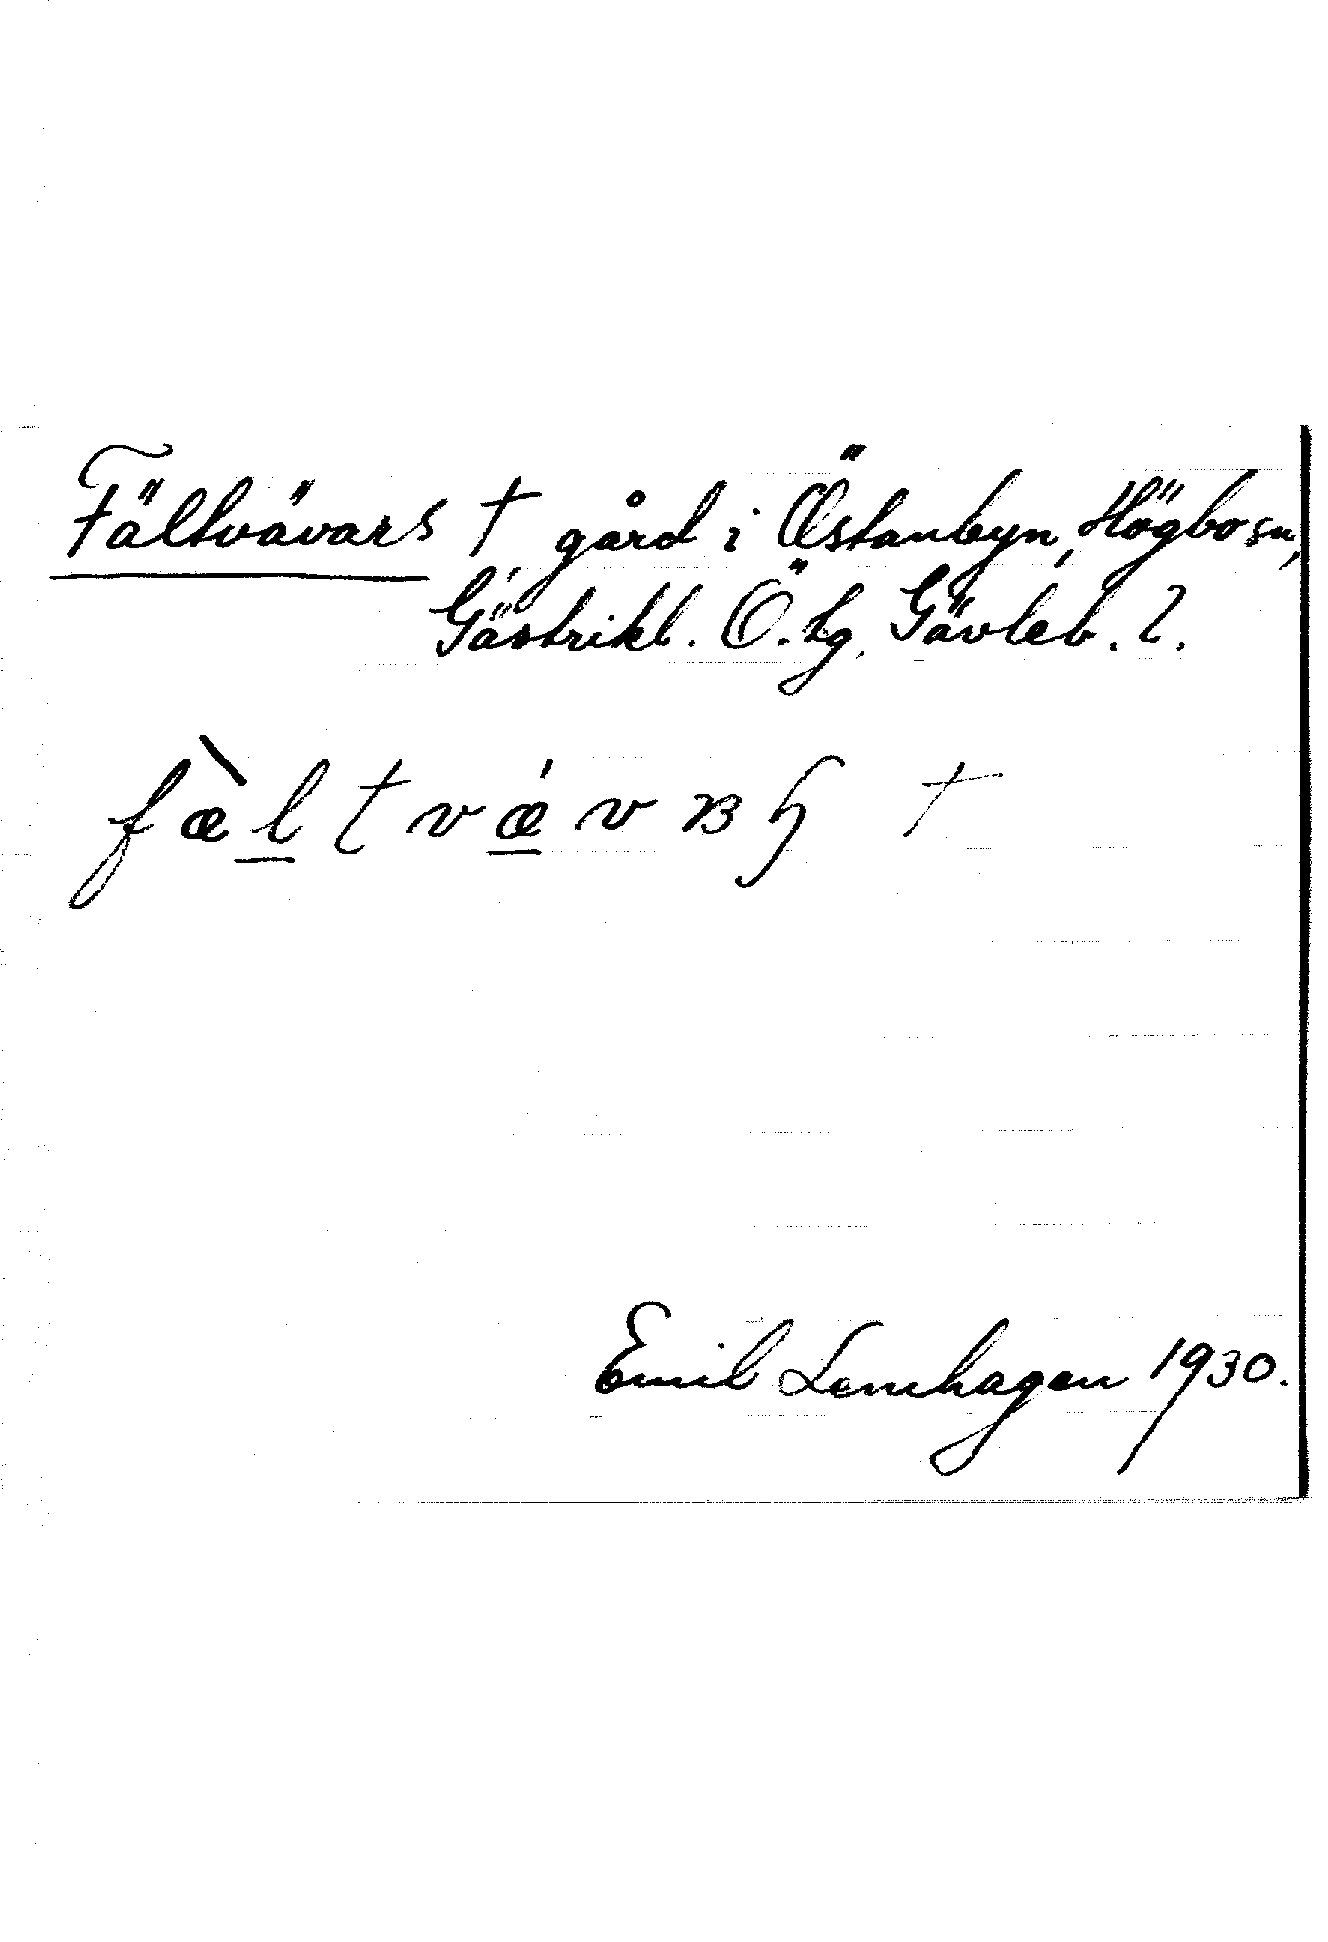 Fältvävars † gård i Östanbyn, Högbo sn,
Gästrikl. Ö. tg. Gävleb. l.
fæ̀l̲tvǽ̲vɐꞩ †
Emil Lenhagen 1930.